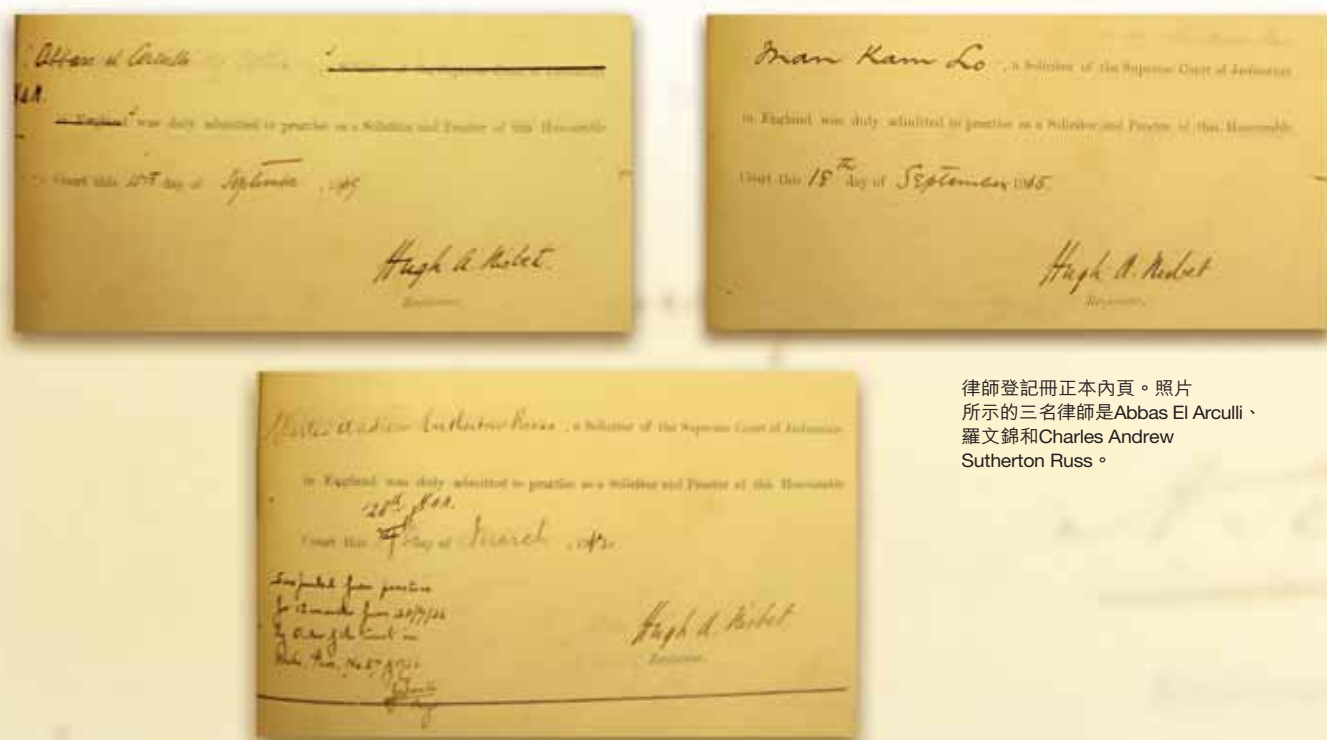 Abbas el Arculli
, a Solicitor of the Supreme Court of Judicature
in England was duly admitted to practise as a Solicitor and Proctor of this Honourable
Court this day of September , 19
Hugh A. Nisbet.
Registrar.
Man Kam Lo , a Solicitor of the Supreme Court of Judicature
in England was duly admitted to practise as a Solicitor and Proctor of this Honourable
Court this 18th day of September 1915.
Hugh A. Nisbet
Registrar.
Charles Andrew Sutherton Russ , a Solicitor of the Supreme Court of Judicature
in England was duly admitted to practise as a Solicitor and Proctor of this Honourable
28th H.A.N.
Court this day of March , 19
Suspended from practice
for 12 months from
by Order of the Court in
Hugh A. Nisbet.
Registrar.
律師登記冊正本內頁。照片
所示的三名律師是Abbas El Arculli、
羅文錦和Charles Andrew
Sutherton Russ。